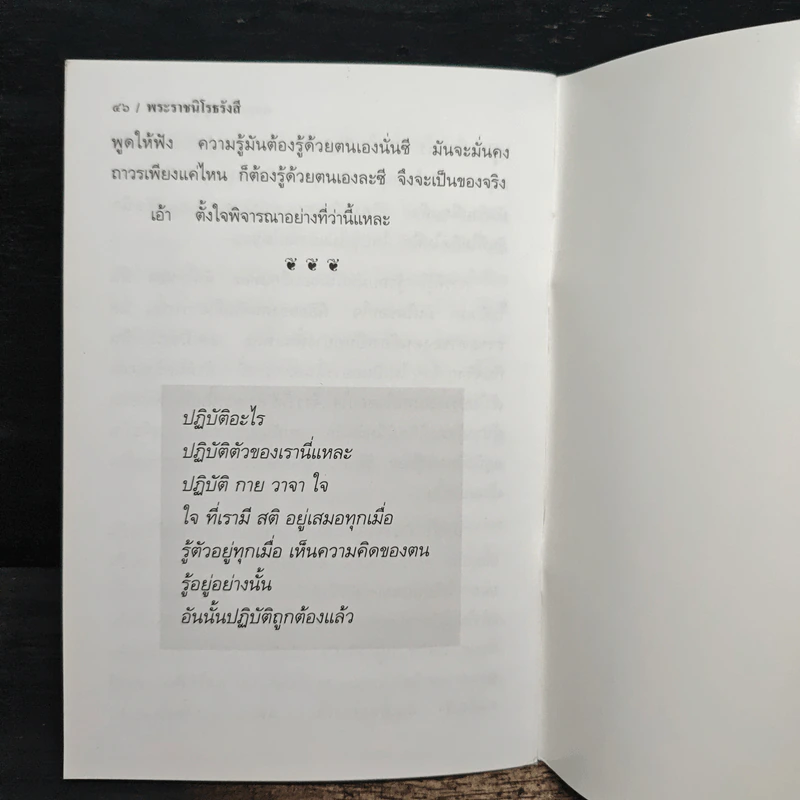 ๔๖ / พระราชนิโรธรังสี
พูดให้ฟัง ความรู้มันต้องรู้ด้วยตนเองนั่นซี มันจะมั่นคง
ถาวรเพียงแค่ไหน ก็ต้องรู้ด้วยตนเองละซี จึงจะเป็นของจริง
เอ้า ตั้งใจพิจารณาอย่างที่ว่านี้แหละ
ปฏิบัติอะไร
ปฏิบัติตัวของเรานี่แหละ
ปฏิบัติ กาย วาจา ใจ
ใจ ที่เรามี สติ อยู่เสมอทุกเมื่อ
รู้ตัวอยู่ทุกเมื่อ เห็นความคิดของตน
รู้อยู่อย่างนั้น
อันนั้นปฏิบัติถูกต้องแล้ว